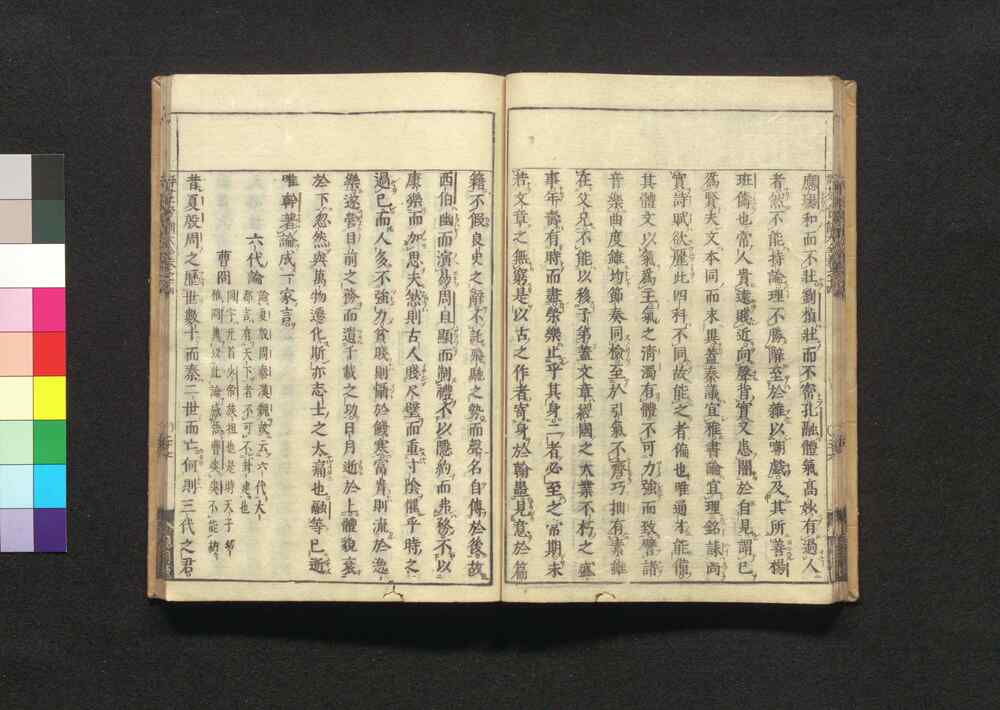 應瑒和而不壯劉楨壯而不密孔融體氣高妙有過人
者然不能持論理不勝辭至於雜以嘲戲及其所善楊
班儔也常人貴遠賤近向聲背實又患闇於自見謂己
爲賢夫文本同而末異蓋奏議宜雅書論宜理銘誄尚
實詩賦欲麗此四科不同故能之者偏也唯通才能備
其體文以氣爲主氣之淸濁有體不可力強而致譬諸
音樂曲度雖均節奏同檢至於引氣不齊巧拙有素雖
在父兄不能以移子弟蓋文章經國之大業不朽之盛
事年壽有時而盡榮樂止乎其身二者必至之常期未
若文章之無窮是以古之作者寄身於翰墨見意於篇
籍不假良史之辭不託飛馳之勢而聲名自傳於後故
西伯幽而演易周旦顯而制禮不以隱約而弗務不以
康樂而加思夫然則古人賤尺璧而重寸陰懼乎時之
過已而人多不強力貧賤則懾於飢寒富貴則流於逸
樂遂營目前之務而遺千載之功日月逝於上體貌衰
於下忽然與萬物遷化斯亦志士之大痛也融等已逝
唯幹著論成一家言
六代論
論夏殷周秦漢魏故云六代大
都言有天下者不可不封建也
曹冏
冏字元首
昔夏殷周之歷世數十而秦二世而亡何則三代之君